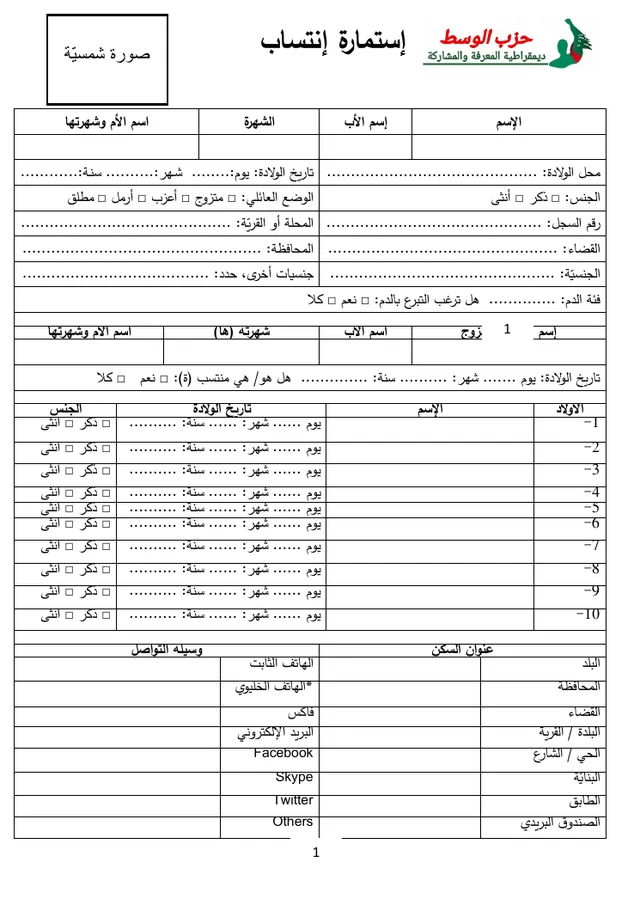 حزب الوسط
ديمقراطية المعرفة والمشاركة
إستمارة إنتساب
صورة شمسيّة
الإسم إسم الأب الشهرة اسم الأم وشهرتها
محل الولادة: ............................................ تاريخ الولادة: يوم:........ شهر:.......... سنة:............
الجنس: □ ذكر □ أنثى الوضع العائلي: □ متزوج □ أعزب □ أرمل □ مطلق
رقم السجل: ............................................. المحلة أو القريّة: ............................................
القضاء: ................................................ المحافظة: ..................................................
الجنسيّة: ............................................... جنسيات أخرى، حدد: .......................................
فئة الدم: .............. هل ترغب التبرع بالدم: □ نعم □ كلا
إسم 1 زوج اسم الاب شهرته (ها) اسم الام وشهرتها
تاريخ الولادة: يوم ....... شهر: .......... سنة: .............. هل هو/ هي منتسب (ة): □ نعم □ كلا
الاولاد الإسم تاريخ الولادة الجنس
1- يوم ...... شهر: ...... سنة: .......... □ ذكر □ انثى
2- يوم ...... شهر: ...... سنة: .......... □ ذكر □ انثى
3- يوم ...... شهر: ...... سنة: .......... □ ذكر □ انثى
4- يوم ...... شهر: ...... سنة: .......... □ ذكر □ انثى
5- يوم ...... شهر: ...... سنة: .......... □ ذكر □ انثى
6- يوم ...... شهر: ...... سنة: .......... □ ذكر □ انثى
7- يوم ...... شهر: ...... سنة: .......... □ ذكر □ انثى
8- يوم ...... شهر: ...... سنة: .......... □ ذكر □ انثى
9- يوم ...... شهر: ...... سنة: .......... □ ذكر □ انثى
10- يوم ...... شهر: ...... سنة: .......... □ ذكر □ انثى
عنوان السكن وسيله التواصل
البلد الهاتف الثابت
المحافظة *الهاتف الخليوي
القضاء فاكس
البلدة / القرية البريد الإلكتروني
الحي / الشارع Facebook
البنايّة Skype
الطابق Twitter
الصندوق البريدي Others
1